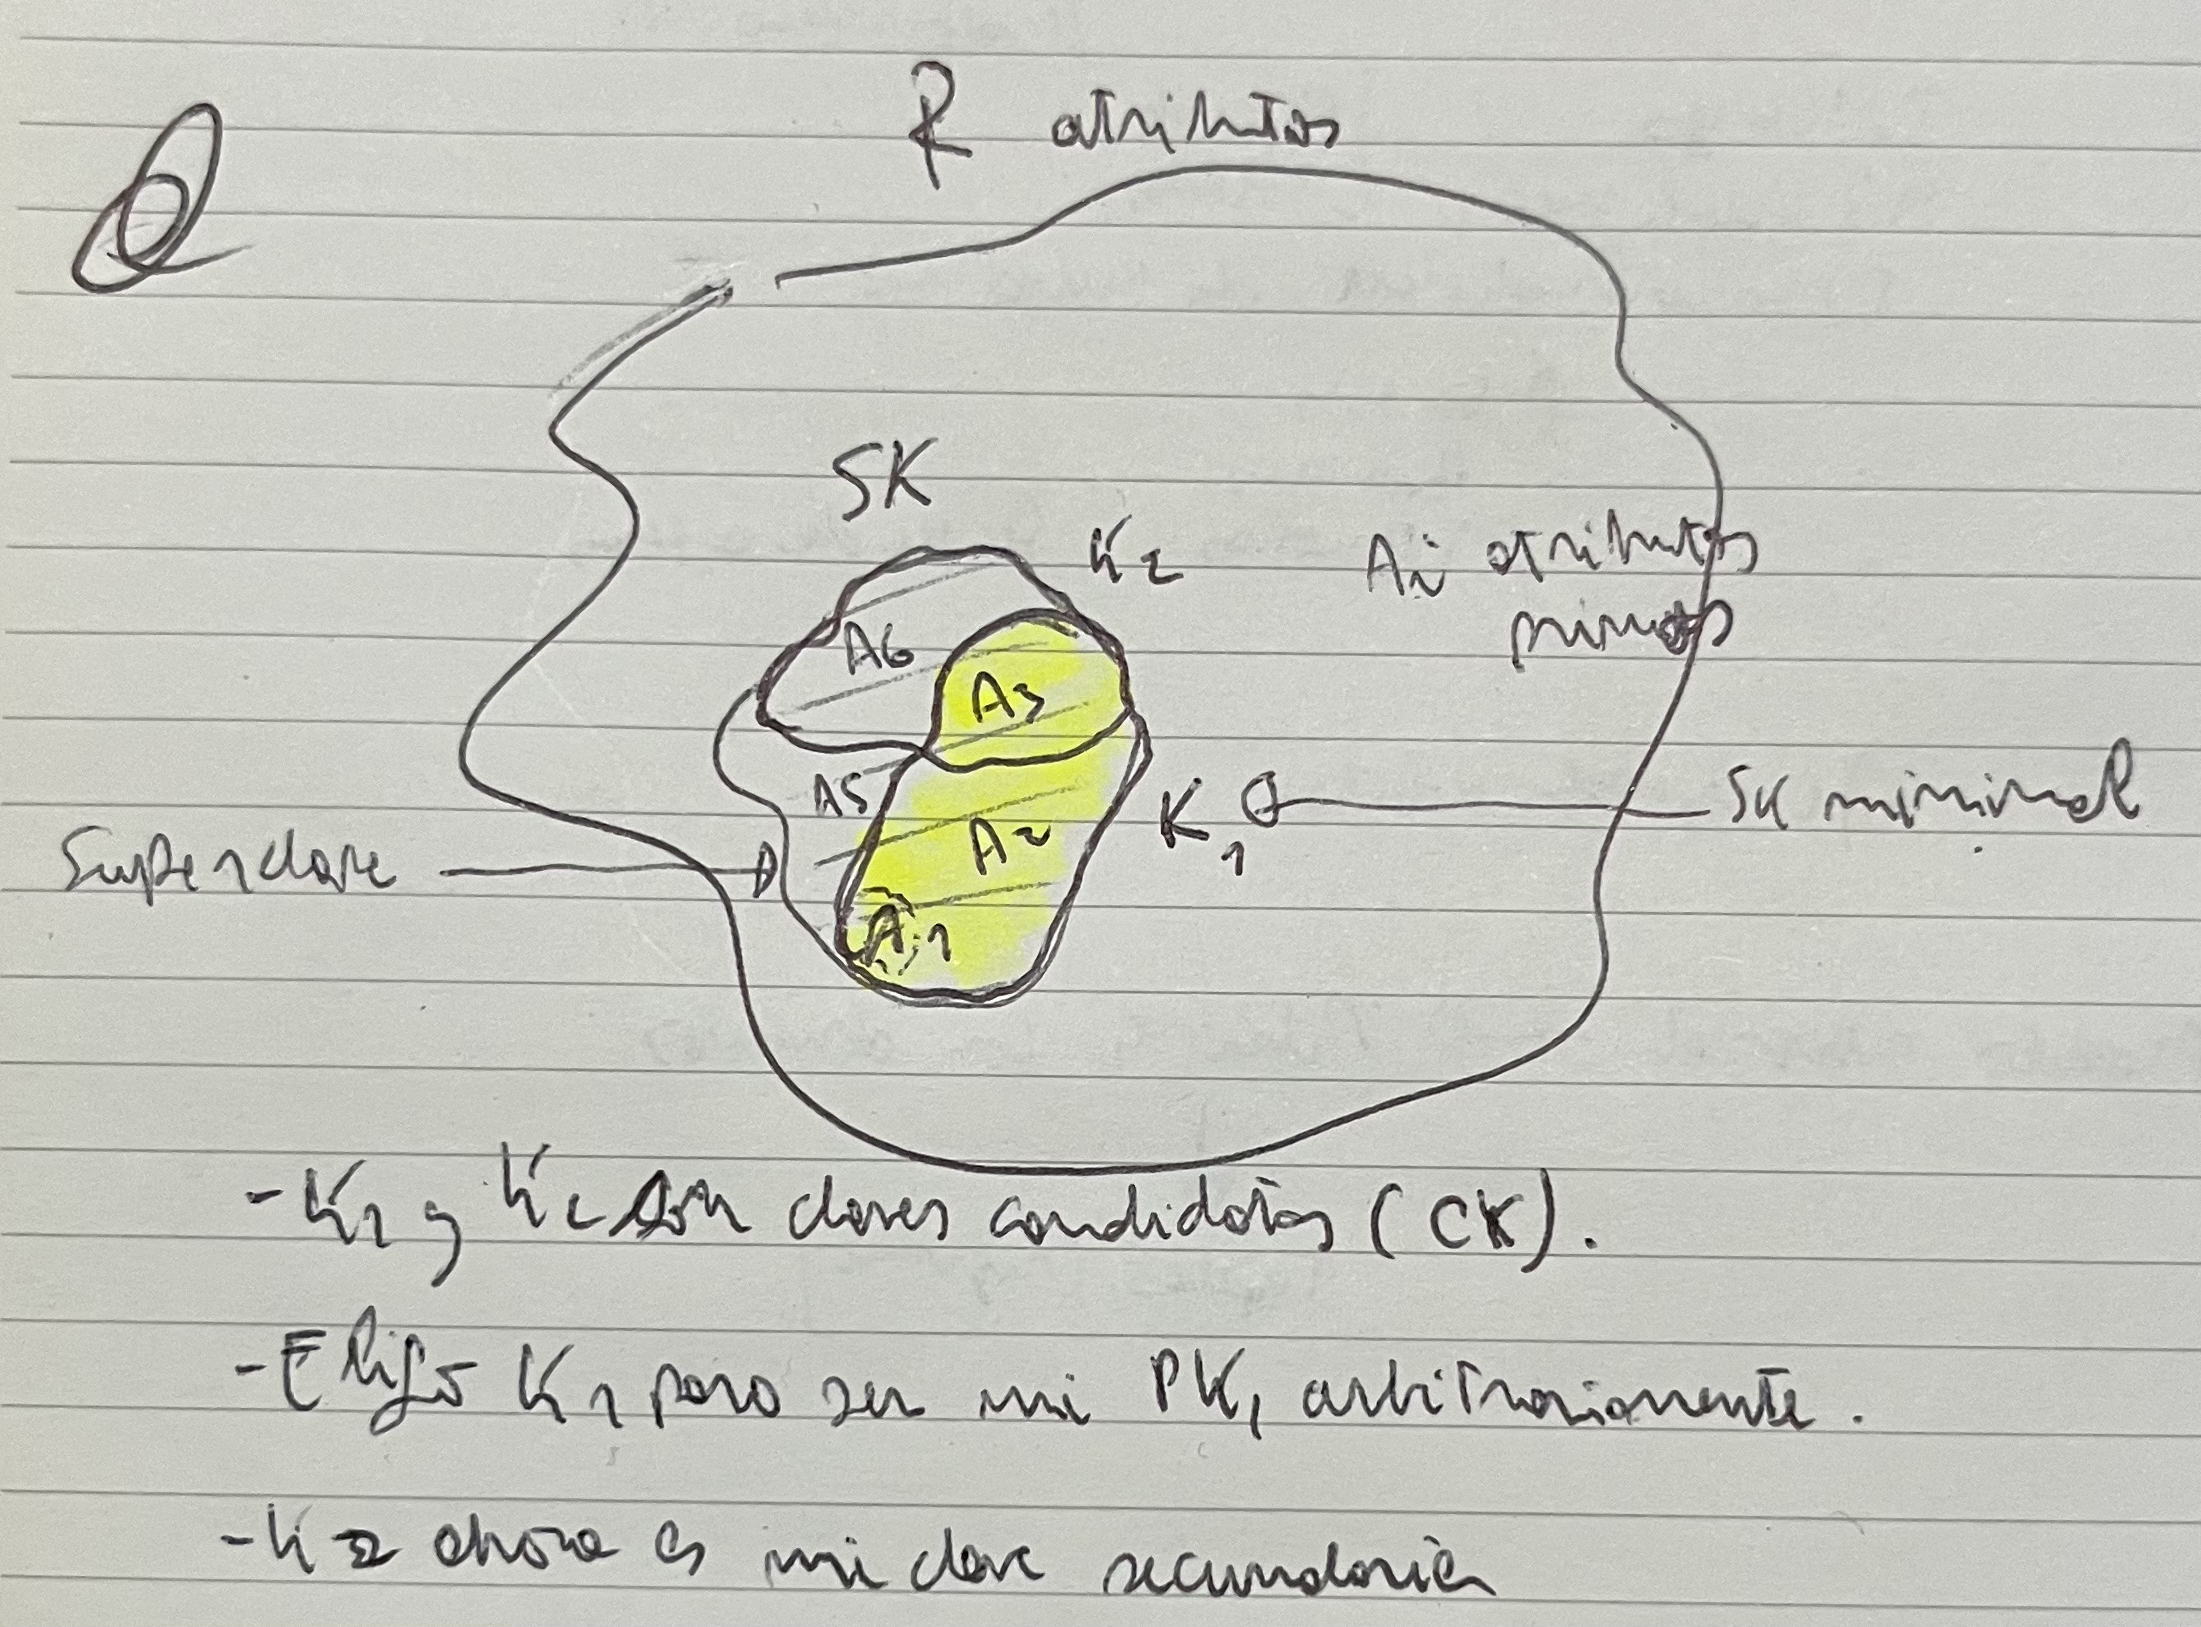 R atributos
SK
K2
Ai atributos
primos
A6
A3
A5
A2
K1
SK minimal
Superclave
A1
- K1 y K2 son claves candidatas (CK).
- Elijo K1 para ser mi PK, arbitrariamente.
- K2 ahora es mi clave secundaria